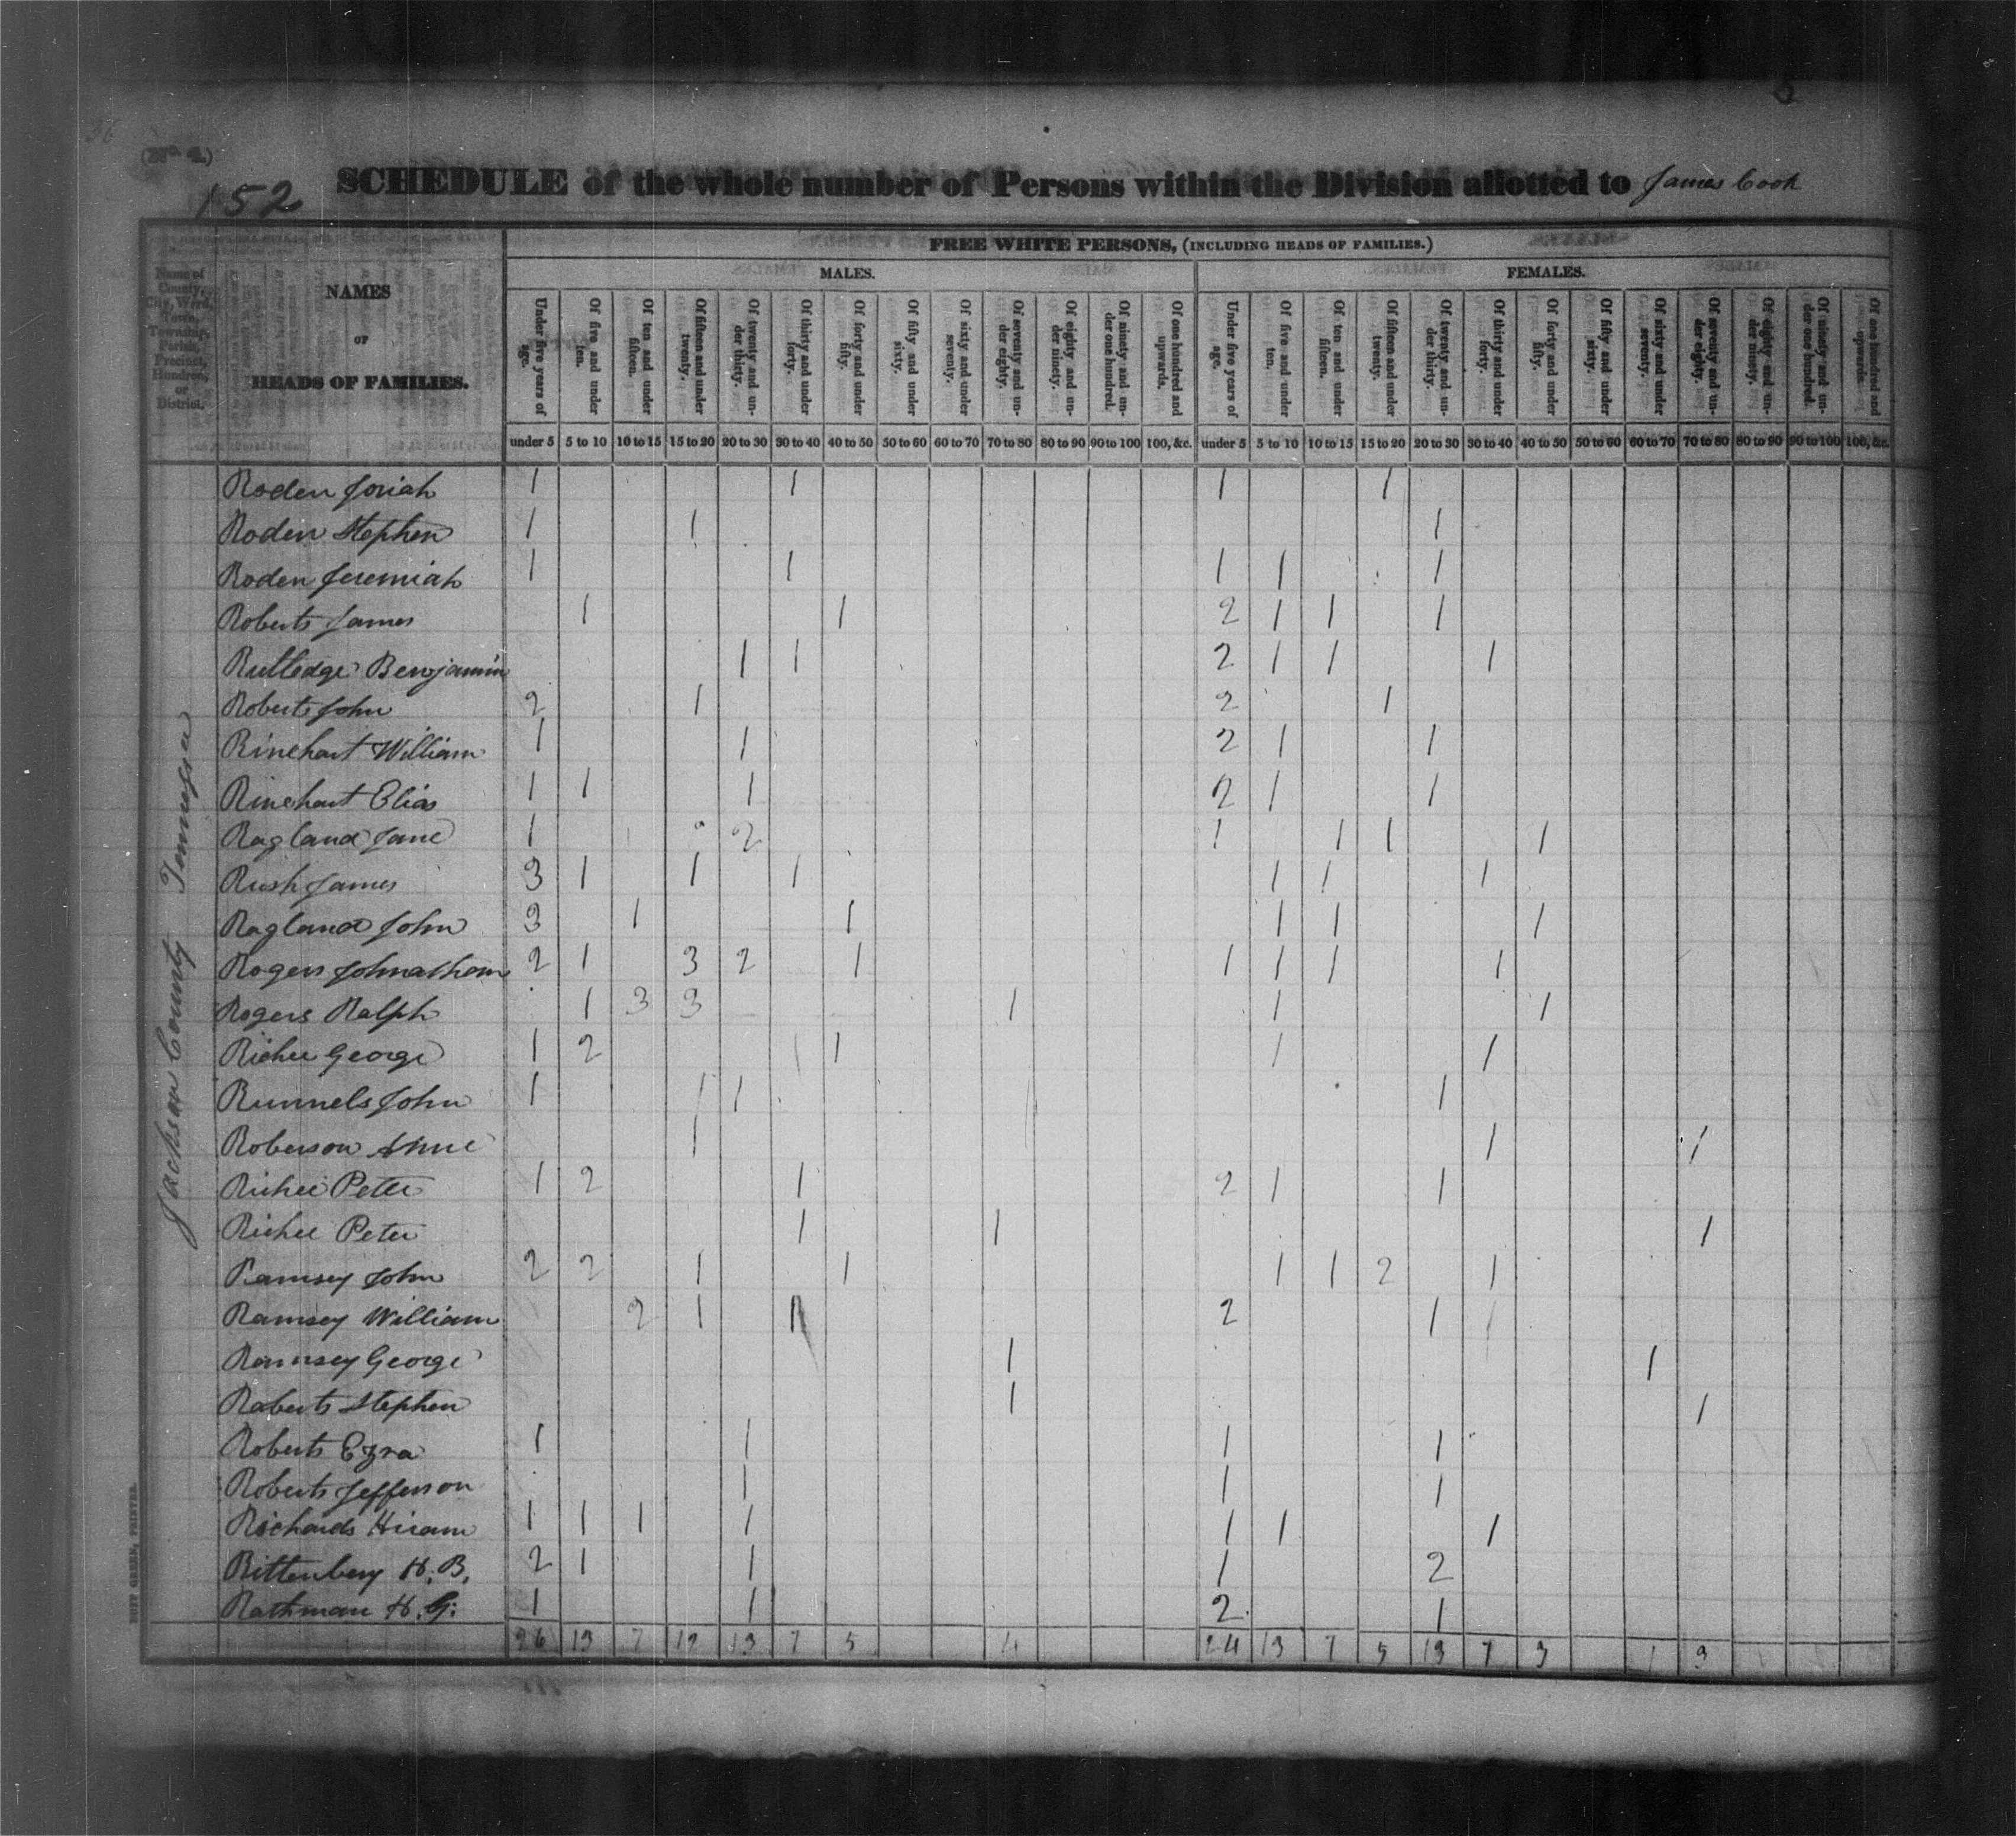 (No. 4.)
152
SCHEDULE of the whole number of Persons within the Division allotted to James Cook
FREE WHITE PERSONS, (INCLUDING HEADS OF FAMILIES.)
MALES. FEMALES.
Name of County, City, Ward, Town, Township, Parish, Precinct, Hundred, or District.
NAMES
OF
HEADS OF FAMILIES.
Under five years of age. Of five and under ten. Of ten and under fifteen. Of fifteen and under twenty. Of twenty and under thirty. Of thirty and under forty. Of forty and under fifty. Of fifty and under sixty. Of sixty and under seventy. Of seventy and under eighty. Of eighty and under ninety. Of ninety and under one hundred. Of one hundred and upwards. Under five years of age. Of five and under ten. Of ten and under fifteen. Of fifteen and under twenty. Of twenty and under thirty. Of thirty and under forty. Of forty and under fifty. Of fifty and under sixty. Of sixty and under seventy. Of seventy and under eighty. Of eighty and under ninety. Of ninety and under one hundred. Of one hundred and upwards.
under 5 5 to 10 10 to 15 15 to 20 20 to 30 30 to 40 40 to 50 50 to 60 60 to 70 70 to 80 80 to 90 90 to 100 100, &c. under 5 5 to 10 10 to 15 15 to 20 20 to 30 30 to 40 40 to 50 50 to 60 60 to 70 70 to 80 80 to 90 90 to 100 100, &c.
Jackson County Tennessee
Roden Josiah 1 1 1 1
Roden Stephen 1 1 1
Roden Jeremiah 1 1 1 1 1
Roberts James 1 1 2 1 1 1
Rutledge Benjamin 1 1 2 1 1 1
Roberts John 2 1 2 1
Rinehart William 1 1 2 1 1
Rinehart Elias 1 1 1 2 1 1
Ragland Jane 1 2 1 1 1 1
Rush James 3 1 1 1 1 1 1
Ragland John 3 1 1 1 1 1
Rogers Johnathom 2 1 3 2 1 1 1 1 1
Rogers Ralph 1 3 3 1 1 1
Richee George 1 2 1 1 1
Runnels John 1 1 1 1
Roberson Anne 1 1 1
Richee Peter 1 2 1 2 1 1
Richee Peter 1 1 1
Ramsey John 2 2 1 1 1 1 2 1
Ramsey William 2 1 1 2 1
Ramsey George 1 1
Roberts Stephen 1 1
Roberts Ezra 1 1 1 1
Roberts Jefferson 1 1 1
Richards Hiram 1 1 1 1 1 1 1
Rittenbery H. B. 2 1 1 1 2
Rathman H. G. 1 1 2 1
26 13 7 12 13 7 5 4 24 13 7 5 13 7 3 1 3
DUFF GREEN, PRINTER.